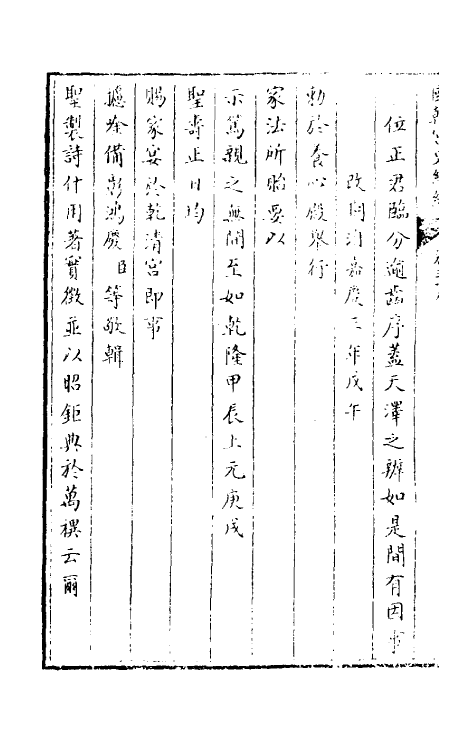 國朝宮史續編
位正君臨分逾齒序蓋天澤之辨如是間有因事
改期洎嘉慶三年戊午
勅於養心殿舉行
家法所貽要以
示篤親之無間至如乾隆甲辰上元庚戌
聖壽正日均
賜家宴於乾清宮即事
攄吟備彰鴻慶臣等敬輯
聖製詩什用著實徵並以昭鉅典於萬禩云爾